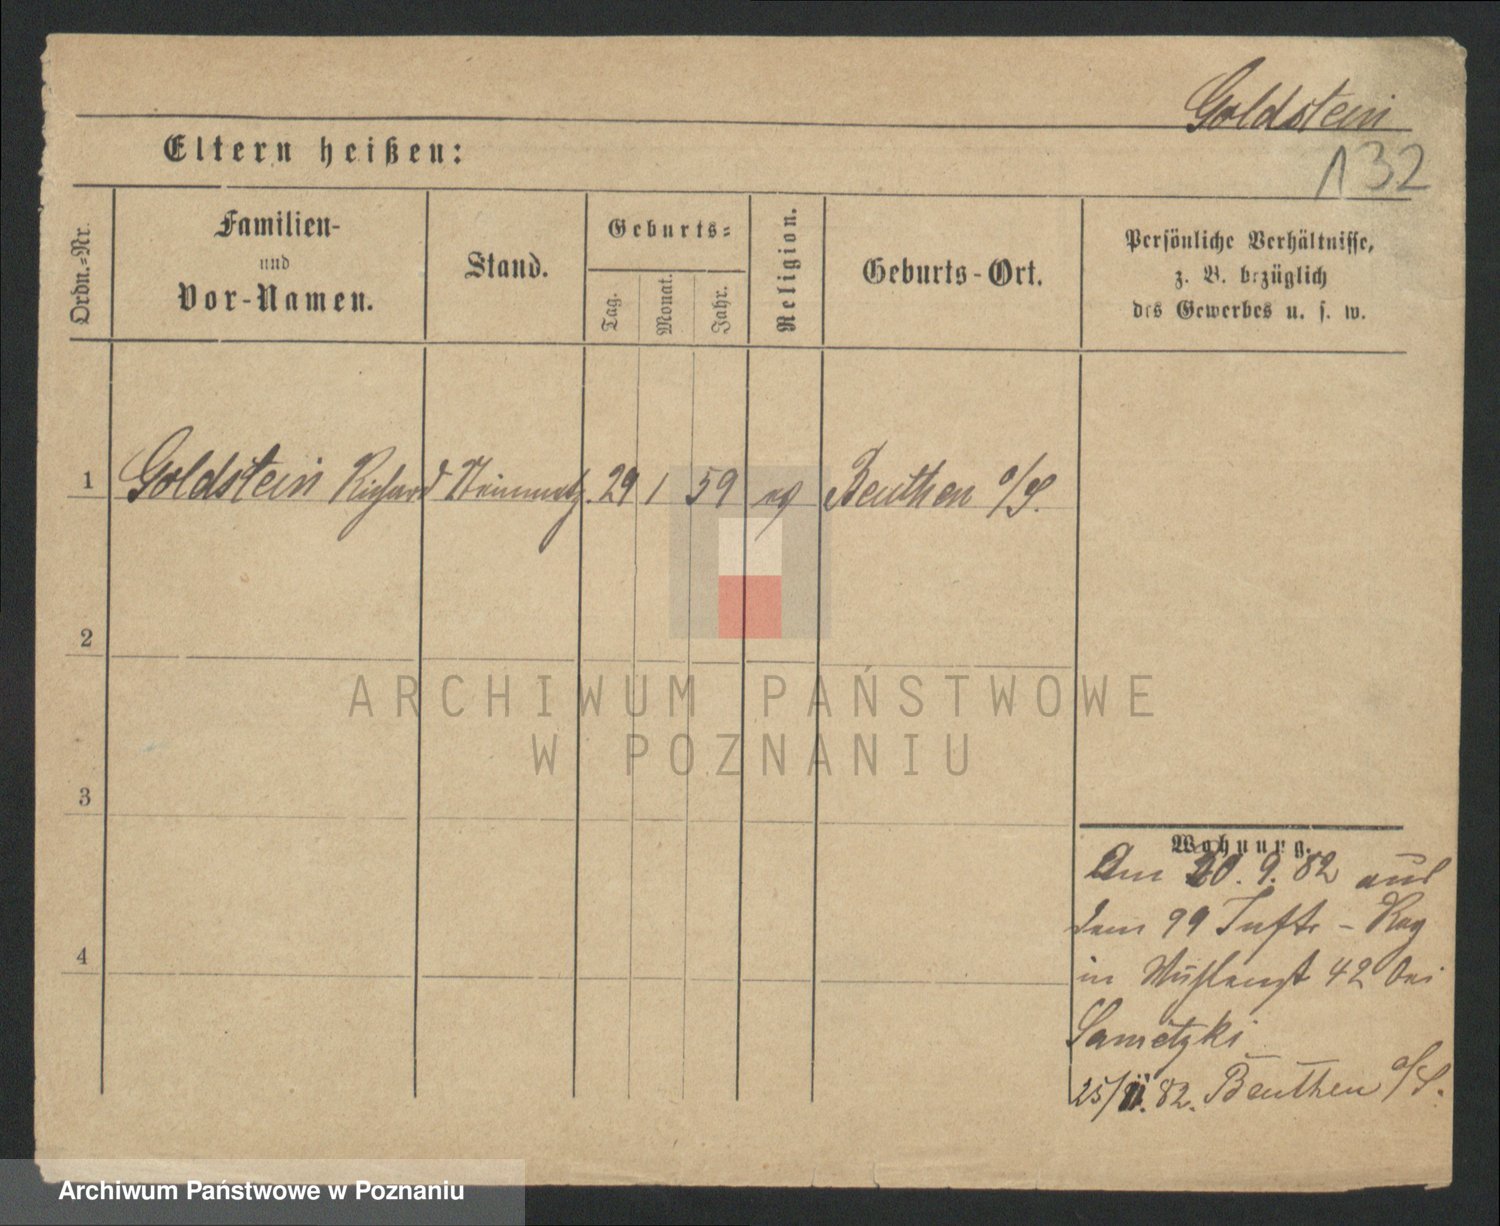 Goldstein
132
Eltern heißen:
Ordn.-Nr.
Familien-
und
Vor-Namen.
Stand.
Geburts-
Tag.
Monat.
Jahr.
Religion.
Geburts-Ort.
Persönliche Verhältnisse,
z. B. bezüglich
des Gewerbes u. s. w.
1 Goldstein Richard 29 1 59 Beuthen o/S.
2
ARCHIWUM PAŃSTWOWE
W POZNANIU
3
4
Wohnung.
Am 20. 9. 82 aus
dem 99 Inftr - Reg
in 42 bei
25/ 82. Beuthen o/S.
Archiwum Państwowe w Poznaniu